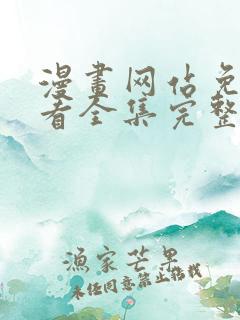 漫畫网站免
看全集完整
漁家芒果
未经同意禁止转载